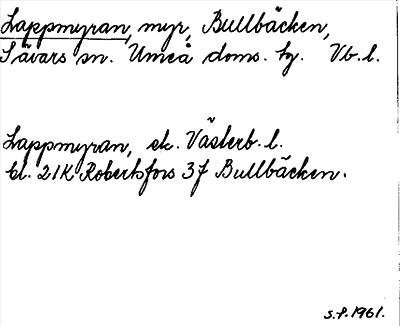 Lappmyran, myr, Bullbäcken,
Sävars sn. Umeå doms. tg. Vb. l.
Lappmyran, ek. Västerb. l.
bl. 21K Robertsfors 3f Bullbäcken.
S.P. 1961.